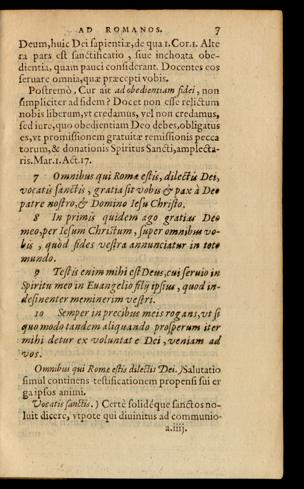 AD ROMANOS. 7
Deum, huic Dei sapientiæ, de qua 1. Cor. 1. Alte
ra pars est sanctificatio, siue inchoata obe-
dientia, quam pauci considerant. Docentes eos
seruare omnia, quæ præcepti vobis.
Postremò, Cur ait ad obedientiam fidei, non
simpliciter ad fidem? Docet non esse relictum
nobis liberum, vt credamus, vel non credamus,
sed iure, quo obedientiam Deo debes, obligatus
es, vt promissionem gratuitæ remissionis pecca
torum, & donationis Spiritus Sancti, amplecta-
ris. Mar. 1. Act. 17.
7 Omnibus qui Romæ estis, dilectis Dei,
vocatis sanctis, gratia sit vobis & pax à Deo
patre nostro, & Domino Iesu Christo.
8 In primis quidem ago gratias Deo
meo, per Iesum Christum, super omnibus vo-
bis, quòd fides vestra annunciatur in toto
mundo.
9 Testis enim mihi est Deus, cui seruio in
Spiritu meo in Euangelio filij ipsius, quod in-
desinenter meminerim vestri.
10 Semper in precibus meis rogans, vt si
quo modo tandem aliquando prosperum iter
mihi detur ex voluntate Dei, veniam ad
vos.
Omnibus qui Romæ estis dilectis Dei.) Salutatio
simul continens testificationem propensi sui er
ga ipsos animi.
Vocatis sanctis.) Certè solidéque sanctos no-
luit dicere, vtpote qui diuinitus ad communio-
a.iiij.